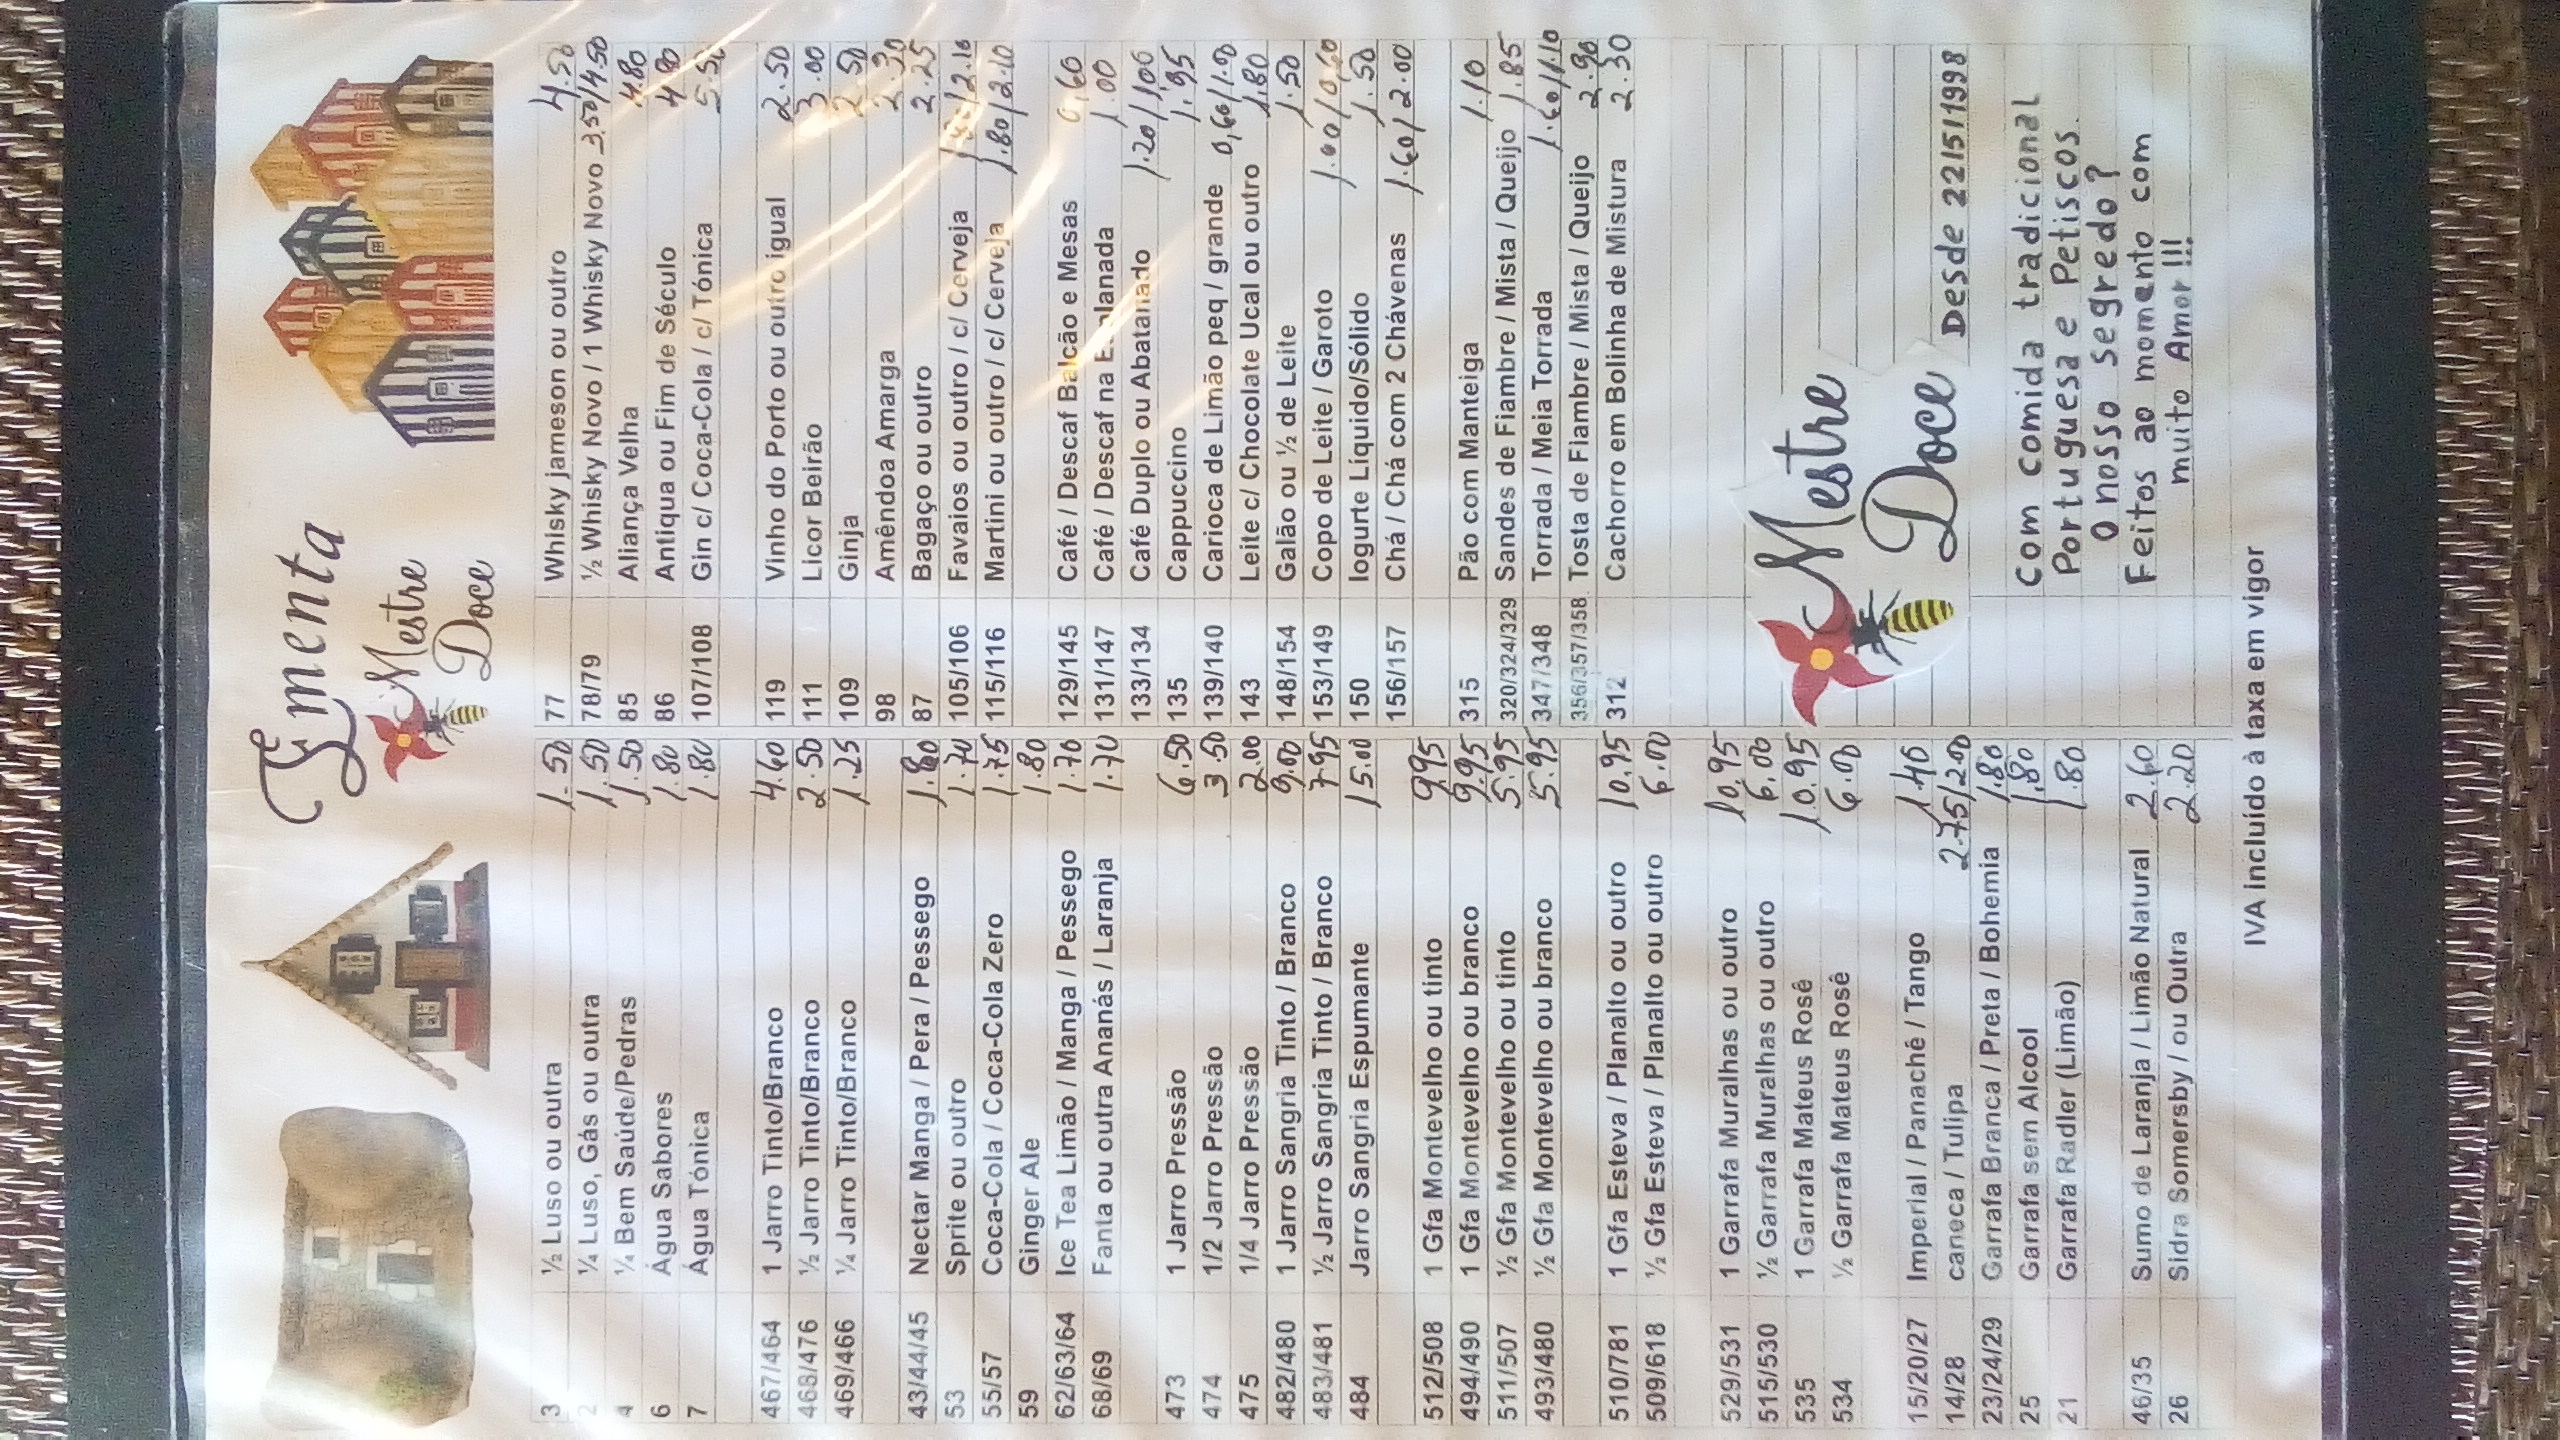 Ementa
Mestre
Doce
3 ½ Luso ou outra 1.50
2 ¼ Luso, Gás ou outra 1.50
4 ¼ Bem Saúde/Pedras 1.50
6 Água Sabores 1.80
7 Água Tónica 1.80
467/464 1 Jarro Tinto/Branco 4.60
468/476 ½ Jarro Tinto/Branco 2.50
469/466 ¼ Jarro Tinto/Branco 1.25
43/44/45 Nectar Manga / Pera / Pessego 1.80
53 Sprite ou outro 1.70
55/57 Coca-Cola / Coca-Cola Zero 1.75
59 Ginger Ale 1.80
62/63/64 Ice Tea Limão / Manga / Pessego 1.70
68/69 Fanta ou outra Ananás / Laranja 1.70
473 1 Jarro Pressão 6.50
474 1/2 Jarro Pressão 3.50
475 1/4 Jarro Pressão 2.00
482/480 1 Jarro Sangria Tinto / Branco 9.00
483/481 ½ Jarro Sangria Tinto / Branco 7.95
484 Jarro Sangria Espumante 15.00
512/508 1 Gfa Montevelho ou tinto 9.95
494/490 1 Gfa Montevelho ou branco 9.95
511/507 ½ Gfa Montevelho ou tinto 5.95
493/480 ½ Gfa Montevelho ou branco 5.95
510/781 1 Gfa Esteva / Planalto ou outro 10.95
509/618 ½ Gfa Esteva / Planalto ou outro 6.00
529/531 1 Garrafa Muralhas ou outro 10.95
515/530 ½ Garrafa Muralhas ou outro 6.00
535 1 Garrafa Mateus Rosê 10.95
534 ½ Garrafa Mateus Rosê 6.00
15/20/27 Imperial / Panaché / Tango 1.40
14/28 caneca / Tulipa 2.75/2.00
23/24/29 Garrafa Branca / Preta / Bohemia 1.80
25 Garrafa sem Alcool 1.80
21 Garrafa Radler (Limão) 1.80
46/35 Sumo de Laranja / Limão Natural 2.60
26 Sidra Somersby / ou Outra 2.20
77 Whisky jameson ou outro 4.50
78/79 ½ Whisky Novo / 1 Whisky Novo 3.50/4.50
85 Aliança Velha 4.80
86 Antiqua ou Fim de Século 4.80
107/108 Gin c/ Coca-Cola / c/ Tónica 5.50
119 Vinho do Porto ou outro igual 2.50
111 Licor Beirão 3.00
109 Ginja 2.50
98 Amêndoa Amarga 2.30
87 Bagaço ou outro 2.25
105/106 Favaios ou outro / c/ Cerveja 1.80/2.10
115/116 Martini ou outro / c/ Cerveja 1.80/2.10
129/145 Café / Descaf Balcão e Mesas 0,60
131/147 Café / Descaf na Esplanada 1.00
133/134 Café Duplo ou Abatanado 1.20/1,00
135 Cappuccino 1,95
139/140 Carioca de Limão peq / grande 0,60/1.00
143 Leite c/ Chocolate Ucal ou outro 1,80
148/154 Galão ou ½ de Leite 1.50
153/149 Copo de Leite / Garoto 1.00/0,60
150 Iogurte Líquido/Sólido 1.50
156/157 Chá / Chá com 2 Chávenas 1.60/2.00
315 Pão com Manteiga 1.10
320/324/329 Sandes de Fiambre / Mista / Queijo 1.85
347/348 Torrada / Meia Torrada 1.60/1.10
356/357/358 Tosta de Fiambre / Mista / Queijo 2.90
312 Cachorro em Bolinha de Mistura 2.30
Mestre
Doce
Desde 22/5/1998
Com comida tradicional
Portuguesa e Petiscos.
O nosso segredo?
Feitos ao momento com
muito Amor!!!
IVA incluído à taxa em vigor